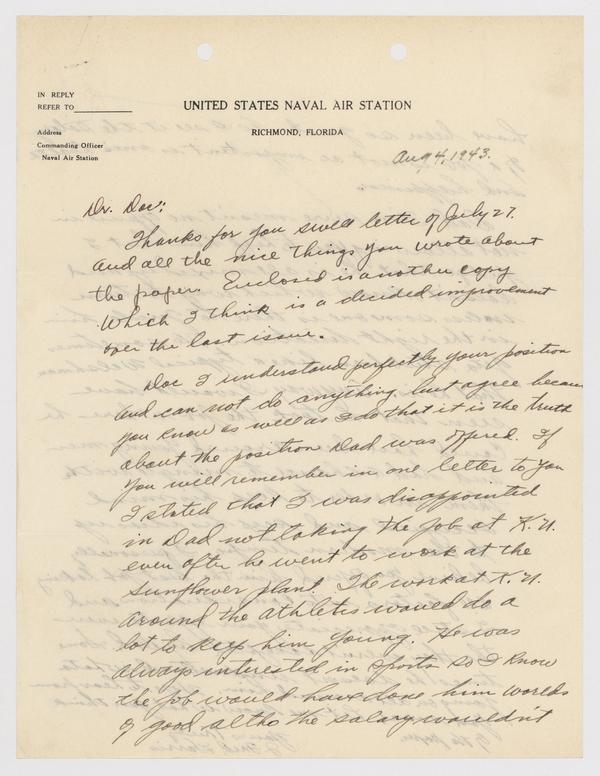 IN REPLY
REFER TO
UNITED STATES NAVAL AIR STATION
RICHMOND, FLORIDA
Address
Commanding Officer
Naval Air Station
Aug 4, 1943.
Dr. Doc:
Thanks for you swell letter of July 27.
and all the nice things you wrote about
the paper. Enclosed is another copy
which I think is a decided improvement
over the last issue.
Doc I understand perfectly your position
and can not do anything, but agree because
you know as well as I do that it is the truth
about the position Dad was offered. If
you will remember in one letter to you
I stated that I was disappointed
in Dad not taking the job at K.U.
even after he went to work at the
sunflower plant. The work at K.U.
around the athletes would do a
lot to keep him young. He was
always interested in sports so I know
the job would have done him worlds
of good altho the salary wouldn't